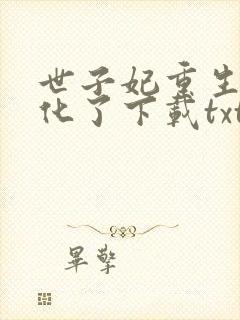 世子妃重生
化了下载txt
畢擎